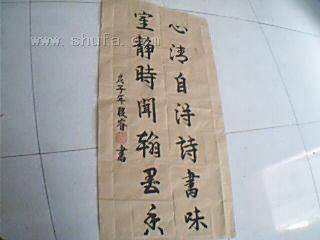 心清自得詩書味
室靜時聞翰墨香
戊子年 書
www.shufa.com